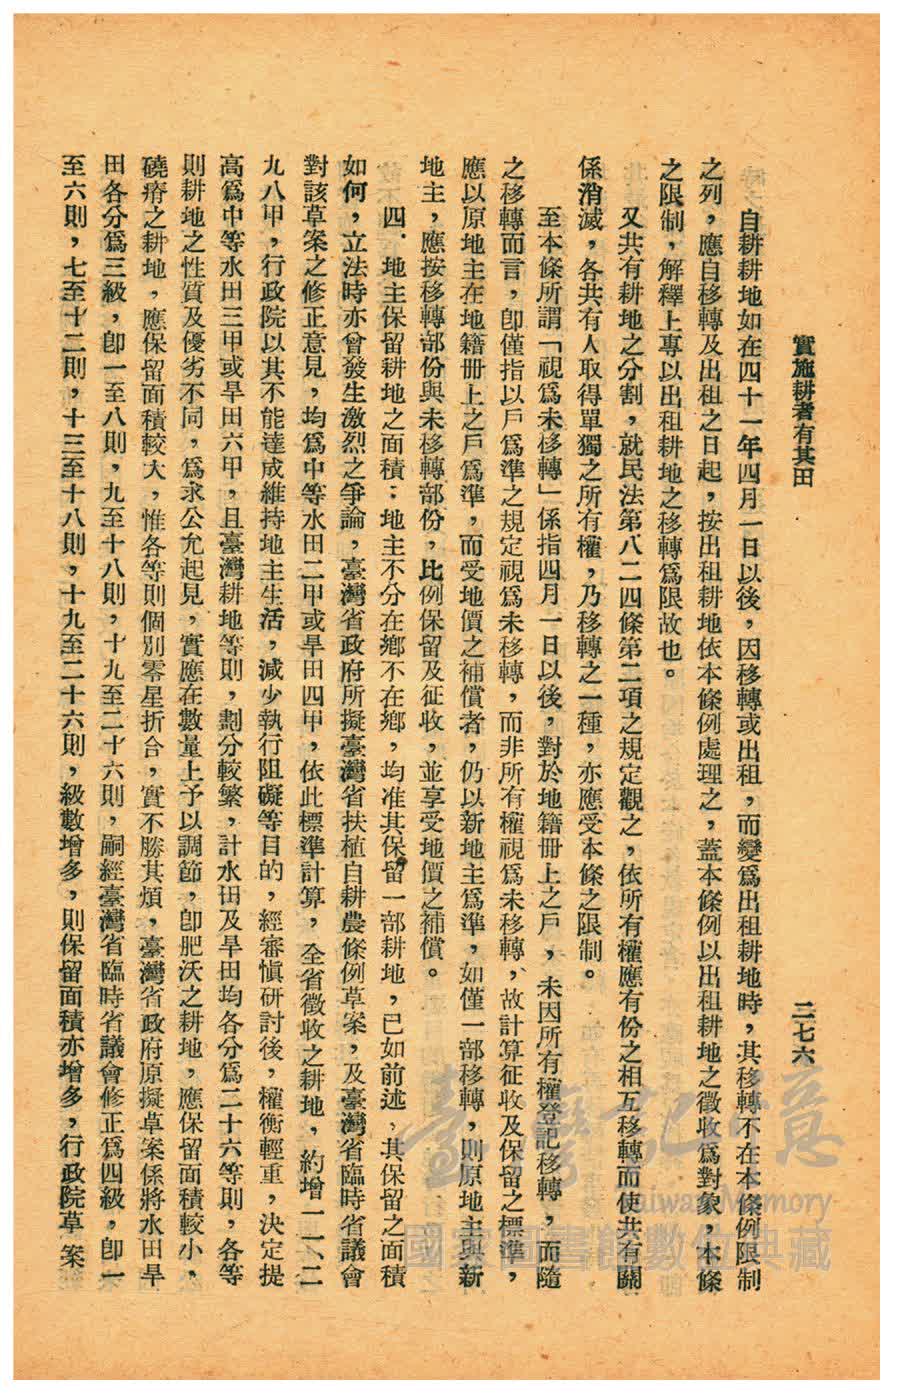 實施耕者有其田
二七六
自耕耕地如在四十一年四月一日以後，因移轉或出租，而變爲出租耕地時，其移轉不在本條例限制
之列，應自移轉及出租之日起，按出租耕地依本條例處理之，蓋本條例以出租耕地之徵收爲對象，本條
之限制，解釋上專以出租耕地之移轉爲限故也。
又共有耕地之分割，就民法第八二四條第二項之規定觀之，依所有權應有份之相互移轉而使共有關
係消滅，各共有人取得單獨之所有權，乃移轉之一種，亦應受本條之限制。
至本條所謂「視爲未移轉」係指四月一日以後，對於地籍冊上之戶，未因所有權登記移轉，而隨
之移轉而言，卽僅指以戶爲準之規定視爲未移轉，而非所有權視爲未移轉，故計算征收及保留之標準，
應以原地主在地籍冊上之戶爲準，而受地價之補償者，仍以新地主爲準，如僅一部移轉，則原地主與新
地主，應按移轉部份與未移轉部份，比例保留及征收，並享受地價之補償。
四．地主保留耕地之面積：地主不分在鄉不在鄉，均准其保留一部耕地，已如前述，其保留之面積
如何，立法時亦會發生激烈之爭論，臺灣省政府所擬臺灣省扶植自耕農條例草案，及臺灣省臨時省議會
對該草案之修正意見，均爲中等水田二甲或旱田四甲，依此標準計算，全省徵收之耕地，約增一一、二
九八甲，行政院以其不能達成維持地主生活，減少執行阻礙等目的，經審愼研討後，權衡輕重，決定提
高爲中等水田三甲或旱田六甲，且臺灣耕地等則，劃分較繁，計水田及旱田均各分爲二十六等則，各等
則耕地之性質及優劣不同，爲求公允起見，實應在數量上予以調節，卽肥沃之耕地，應保留面積較小，
磽瘠之耕地，應保留面積較大，惟各等則個別零星折合，實不勝其煩，臺灣省政府原擬草案係將水田旱
田各分爲三級，卽一至八則，九至十八則，十九至二十六則，嗣經臺灣省臨時省議會修正爲四級，卽一
至六則，七至十二則，十三至十八則，十九至二十六則，級數增多，則保留面積亦增多，行政院草案
臺灣記憶
Taiwan Memory
國家圖書館數位典藏